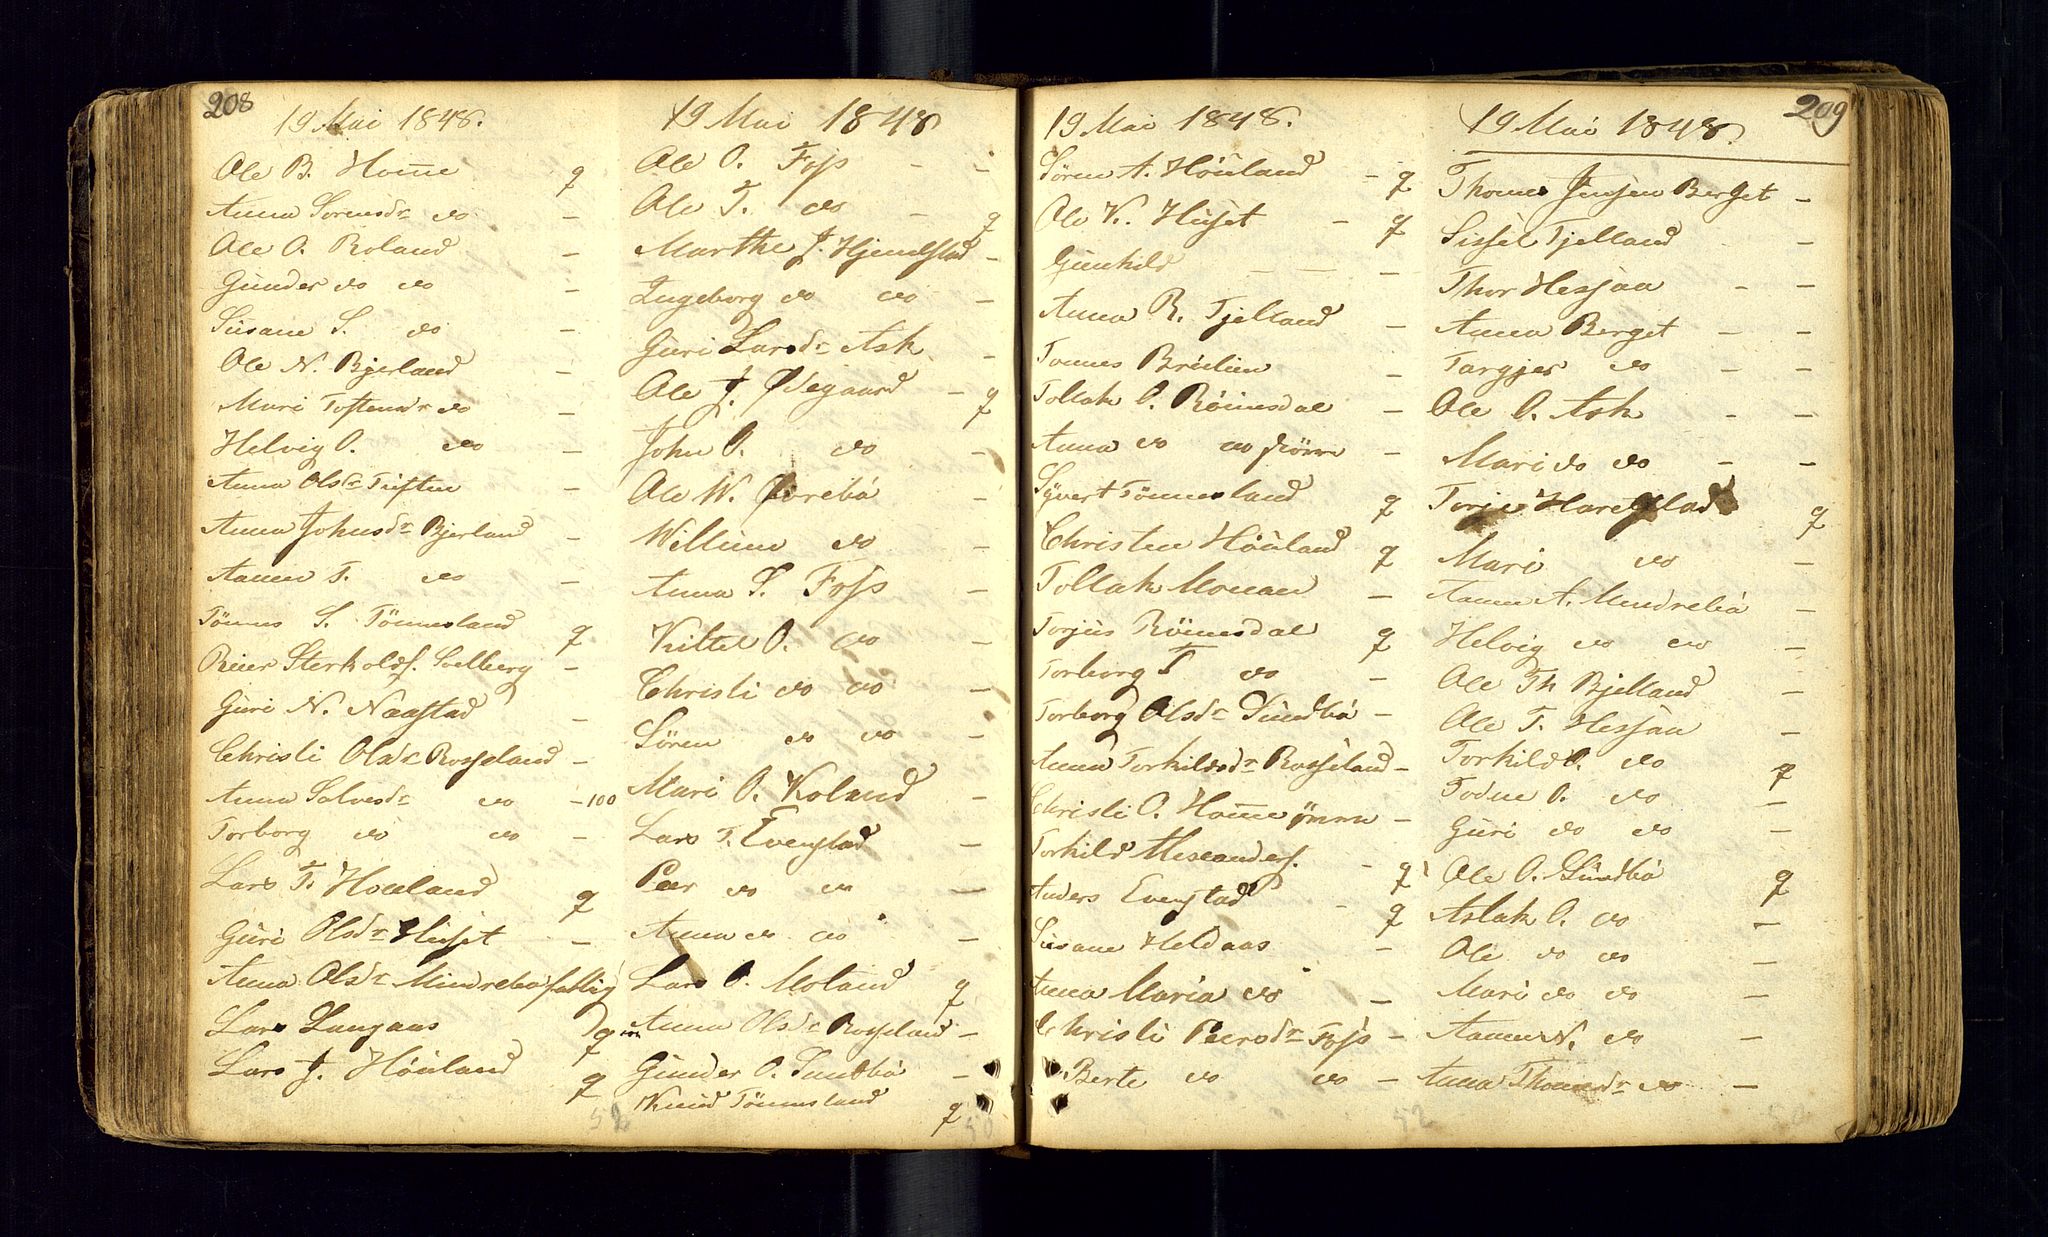 208
19 Mai 1848.
Ole B. Home q
Anna Sorensdr do –
Ole O. Roland –
Gunder do do –
Susane S. do –
Ole N. Bjerland –
Mari Tostensdr do –
Helvig O. do –
Anna Olsdr Tuften –
Anna Johnsdr Bjerland –
Aanen T. do –
Tönnes S. Tönnesland q
Reier Sterkolds. Solberg –
Guri N. Naastad –
Christi Olsdr Rosseland –
Anna Salvesdr do – 100
Torborg do do –
Lars T. Houland q
Guri Olsdr Huset –
Anna Olsdr Mindrebö fattig
Lars Langaas q
Lars J. Höuland q
52
19 Mai 1848
Ole O. Foss – –
Ole T. do – q
Marthe J. Hjemlestad –
Ingeborg do do –
Guri Larsdr Ask –
Ole J. Ödegaard – q
John O. do –
Ole W. Övrebö –
Willum do –
Anna S. Foss –
Kittel O. do –
Christi do do –
Sören do do –
Mari O. Roland –
Lars T. Evenstad –
Peer do do –
Anna do do –
Lars O. Moland q
Anna Olsdr Rosseland –
Gunder O. Sundbö –
Knud Tönnesland q
50
209
19 Mai 1848.
Sören A. Höuland – q
Ole K. Huset – q
Gunhild – – –
Anna R. Tjelland –
Tonnes Brulien –
Tollak O. Röinesdal –
Anna do do –
Syvert Tönnesland q
Christen Höuland q
Tollak Monan –
Torjus Röinesdal q
Torborg T do –
Torborg Olsdr Sundbö –
Anna Torkildsdr Rosseland –
Christi O. Home –
Torkild Alexanders. – q
Anders Evenstad – q
Susane Heldaas –
Anna Maria do –
Christi Peersdr Foss –
Berte do do –
52
19 Mai 1848.
Thomas Jensen Berget –
Sissel Tjelland –
Thor Hessaa – –
Anna Berget – –
Targjer do – –
Ole O. Ask – –
Mari do do – –
Torjus Harestad q
Mari do –
Aanen A. Mindrebö –
Helvig do do –
Ole Th Bjelland –
Ole T. Hessaa –
Torkild O. do q
Todne O. do –
Guri do do –
Ole O. Sundbö q
Aslak O. do –
Ole do do –
Mari do do –
Aanen N. do –
Anna Thomasdr do –
50